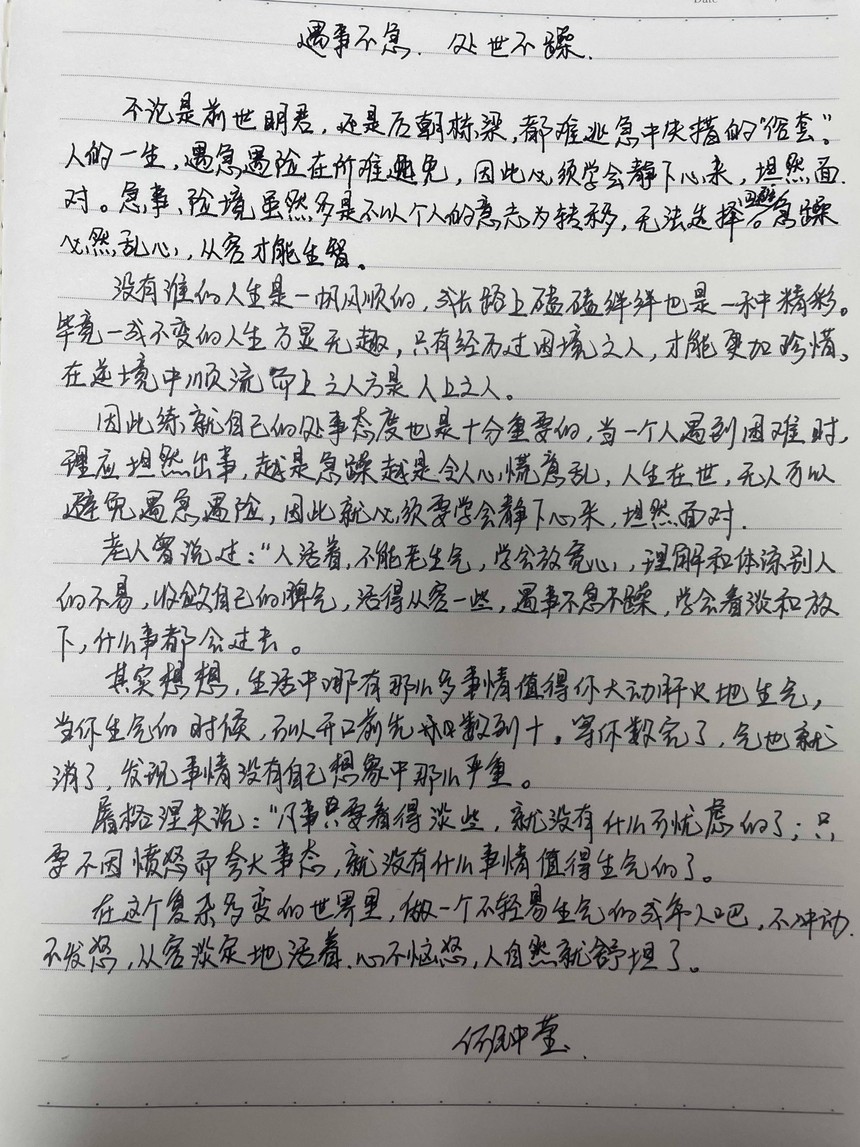 Date
遇事不急. 处世不躁.
不论是前世明君，还是后朝栋梁，都难逃急中失措的“俗套”。
人的一生，遇急遇险在所难避免，因此必须学会静下心来，坦然面
对。急事、险境虽然多是不以个人的意志为转移，无法选择回避。急躁
必然乱心，从容才能生智。
没有谁的人生是一帆风顺的，成长路上磕磕绊绊也是一种精彩。
毕竟一成不变的人生方显无趣，只有经历过困境之人，才能更加珍惜。
在逆境中顺流而上之人方是人上之人。
因此练就自己的处事态度也是十分重要的，当一个人遇到困难时，
理应坦然出事，越是急躁越是令人心慌意乱，人生在世，无人可以
避免遇急遇险，因此就必须要学会静下心来，坦然面对.
老人曾说过：“人活着，不能老生气，学会放宽心，理解和体谅别人
的不易，收敛自己的脾气，活得从容一些，遇事不急不躁，学会看淡和放
下，什么事都会过去。
其实想想，生活中哪有那么多事情值得你大动肝火地生气，
当你生气的时候，可以开口前先数到十。等你数完了，气也就
消了，发现事情没有自己想象中那么严重。
屠格涅夫说：“凡事只要看得淡些，就没有什么可忧虑的了；只
要不因愤怒而夸大事态，就没有什么事情值得生气的了。
在这个复杂多变的世界里，做一个不轻易生气的成年人吧，不冲动.
不发怒，从容淡定地活着.心不恼怒，人自然就舒坦了。